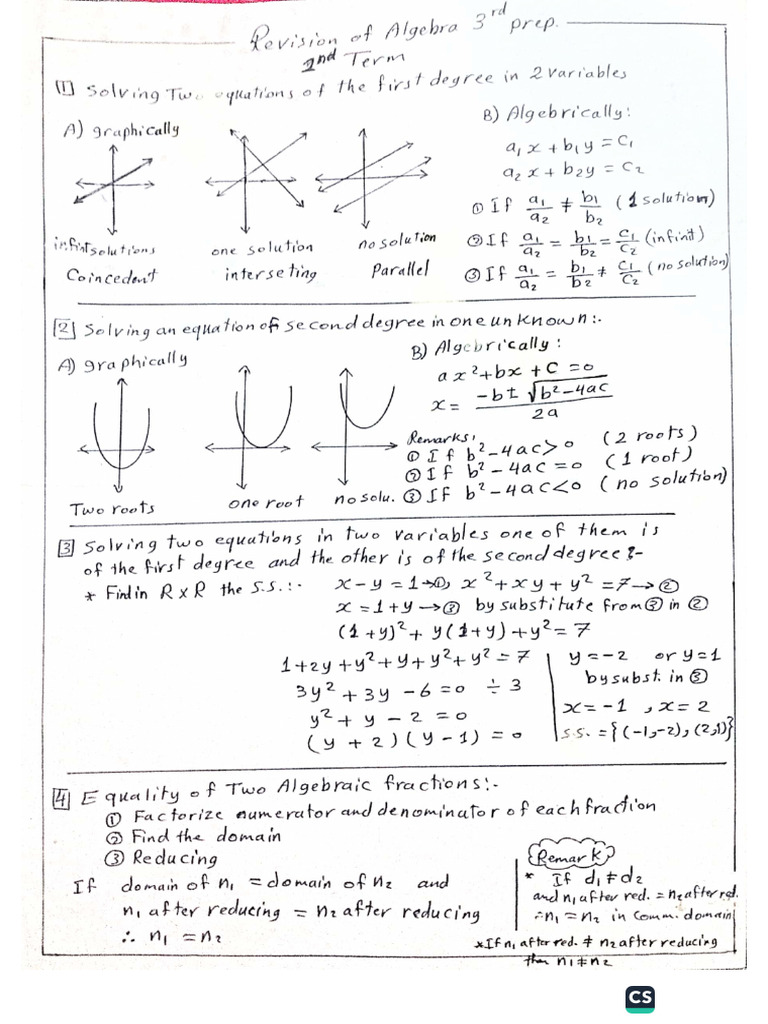 Revision of Algebra 3rd prep.
2nd Term
1 Solving Two equations of the first degree in 2 variables
A) graphically
infint solutions
Coincedent
one solution
interseting
no solution
Parallel
B) Algebrically:
a₁x + b₁y = c₁
a₂x + b₂y = c₂
① If a₁/a₂ ≠ b₁/b₂ (1 solution)
② If a₁/a₂ = b₁/b₂ = c₁/c₂ (infinit)
③ If a₁/a₂ = b₁/b₂ ≠ c₁/c₂ (no solution)
2 Solving an equation of second degree in one unknown:-
A) graphically
Two roots
one root
no solu.
B) Algebrically:
ax²+bx+c=0
x = -b±√b²-4ac / 2a
Remarks:
① If b²-4ac>0 (2 roots)
② If b²-4ac=0 (1 root)
③ If b²-4ac<0 (no solution)
3 Solving two equations in two variables one of them is
of the first degree and the other is of the second degree:-
* Find in R×R the S.S.:- x-y=1→①, x²+xy+y²=7→②
x=1+y→③ by substitute from ③ in ②
(1+y)²+y(1+y)+y²=7
1+2y+y²+y+y²+y²=7
3y²+3y-6=0 ÷3
y²+y-2=0
(y+2)(y-1)=0
y=-2 or y=1
by subst. in ③
x=-1, x=2
S.S.={(-1,-2),(2,1)}
4 Equality of Two Algebraic fractions:-
① Factorize numerator and denominator of each fraction
② Find the domain
③ Reducing
If domain of n₁ = domain of n₂ and
n₁ after reducing = n₂ after reducing
∴ n₁ = n₂
Remark
* If d₁≠d₂
and n₁ after red. = n₂ after red.
∴n₁=n₂ in comm. domain
*If n₁ after red. ≠ n₂ after reducing
then n₁≠n₂
CS